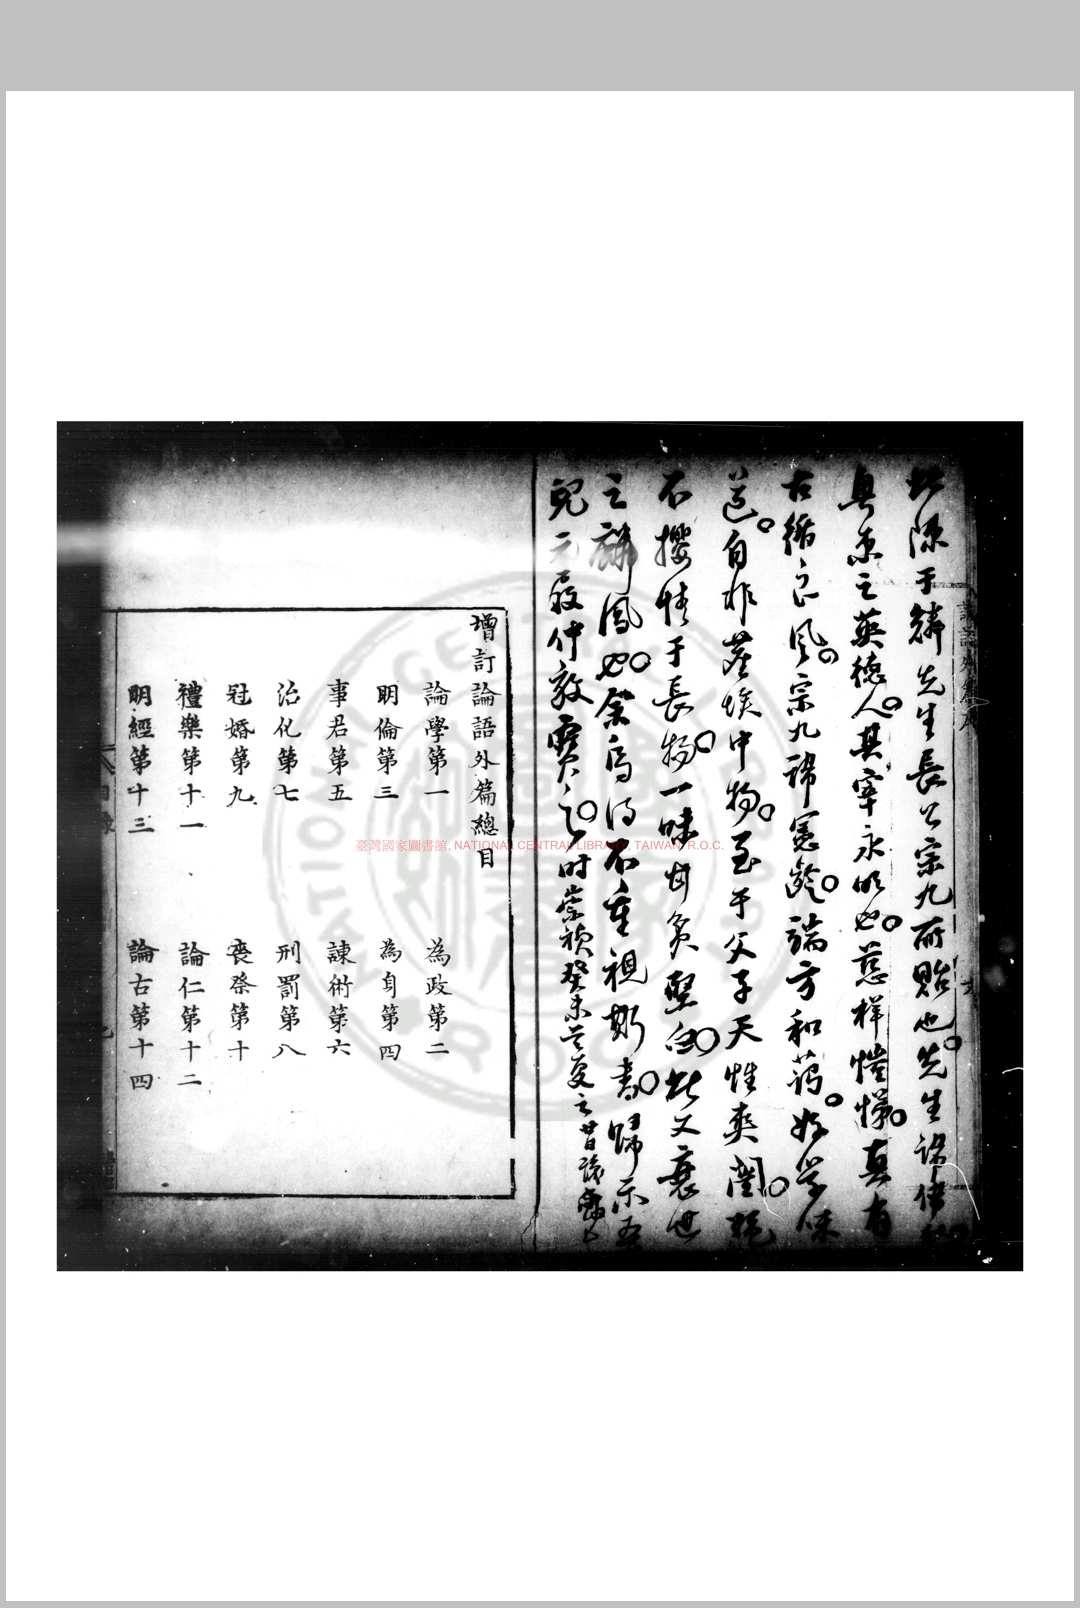 此陳于麟先生長公宗九所貽也先生諱
粵東之英德人其宰永明也慈祥愷悌真有
古循良風宗九諱憲齡端方和藹好學味
道自非塵埃中物至于父子天性爽闓絕
不攖情于長物一味甘貧堅白此又衰世
之麟鳳也余焉得不重視斯書歸示吾
兒元發仲敦寶之時崇禎癸未
增訂論語外篇總目
論學第一 為政第二
明倫第三 為身第四
事君第五 諫術第六
治化第七 刑罰第八
冠婚第九 喪祭第十
禮樂第十一 論仁第十二
明經第十三 論古第十四
臺灣國家圖書館, NATIONAL CENTRAL LIBRARY, TAIWAN, R.O.C.